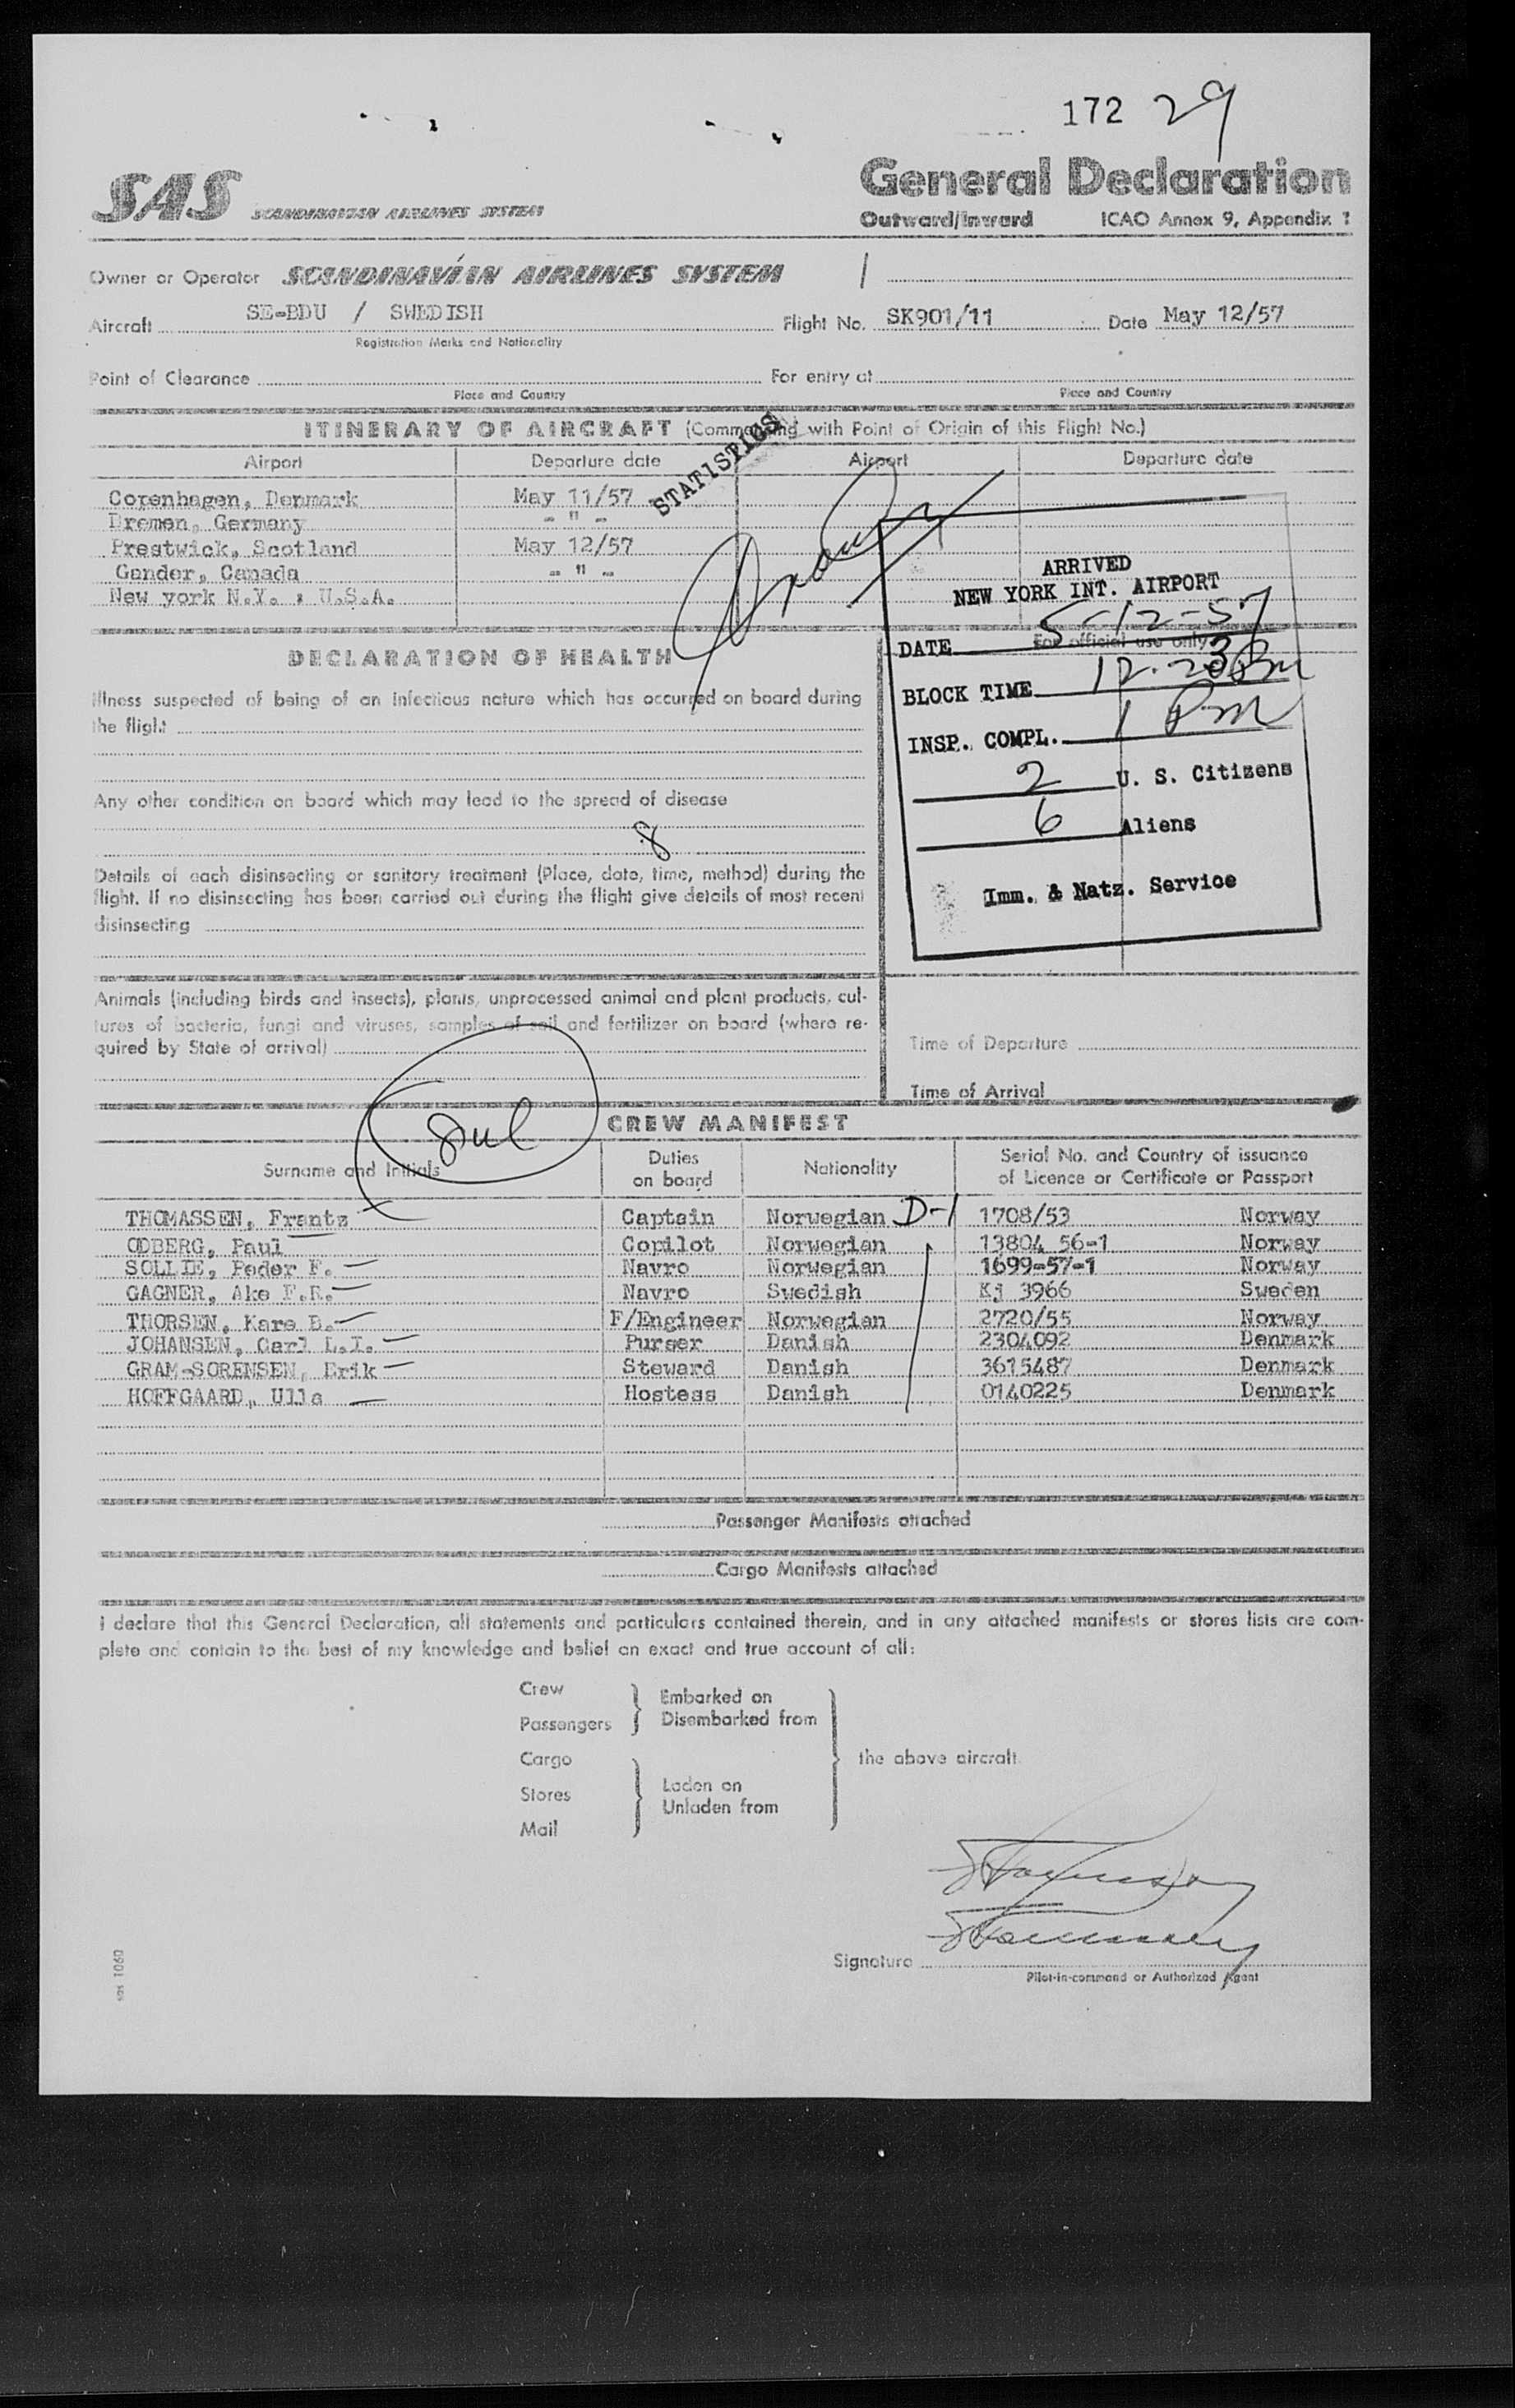 172 29
SAS SCANDINAVIAN AIRLINES SYSTEM
General Declaration
Outward/Inward ICAO Annex 9, Appendix 1
Owner or Operator SCANDINAVIAN AIRLINES SYSTEM
Aircraft SE-BDU / SWEDISH Flight No. SK901/11 Date May 12/57
Registration Marks and Nationality
Point of Clearance For entry at
Place and Country Place and Country
ITINERARY OF AIRCRAFT (Commencing with Point of Origin of this Flight No.)
STATISTICS
Airport Departure date Airport Departure date
Copenhagen, Denmark May 11/57
Bremen, Germany - " -
Prestwick, Scotland May 12/57
Gander, Canada - " -
New york N.Y. , U.S.A.
ARRIVED
NEW YORK INT. AIRPORT
DATE 5-12-57
For official use only
BLOCK TIME 12.23 Pm
INSP. COMPL. 1 Pm
2 U. S. Citizens
6 Aliens
Imm. & Natz. Service
DECLARATION OF HEALTH
Illness suspected of being of an infectious nature which has occurred on board during
the flight
Any other condition on board which may lead to the spread of disease
8
Details of each disinsecting or sanitary treatment (Place, date, time, method) during the
flight. If no disinsecting has been carried out during the flight give details of most recent
disinsecting
Animals (including birds and insects), plants, unprocessed animal and plant products, cul-
tures of bacteria, fungi and viruses, samples of soil and fertilizer on board (where re-
quired by State of arrival)
Time of Departure
Time of Arrival
CREW MANIFEST
Surname and Initials Duties on board Nationality Serial No. and Country of issuance
of Licence or Certificate or Passport
THOMASSEN, Frantz Captain Norwegian D-1 1708/53 Norway
ODBERG, Paul Copilot Norwegian 13804 56-1 Norway
SOLLIE, Peder F. Navro Norwegian 1699-57-1 Norway
GAGNER, Ake F.R. Navro Swedish Kj 3966 Sweden
THORSEN, Kare B. F/Engineer Norwegian 2720/55 Norway
JOHANSEN, Carl L.I. Purser Danish 2304092 Denmark
GRAM-SORENSEN, Erik Steward Danish 3615487 Denmark
HOFFGAARD, Ulla Hostess Danish 0140225 Denmark
Passenger Manifests attached
Cargo Manifests attached
I declare that this General Declaration, all statements and particulars contained therein, and in any attached manifests or stores lists are com-
plete and contain to the best of my knowledge and belief an exact and true account of all:
Crew
Passengers
Embarked on
Disembarked from
Cargo
Stores
Mail
Laden on
Unladen from
the above aircraft
Signature
Pilot-in-command or Authorized Agent
SAS 1060